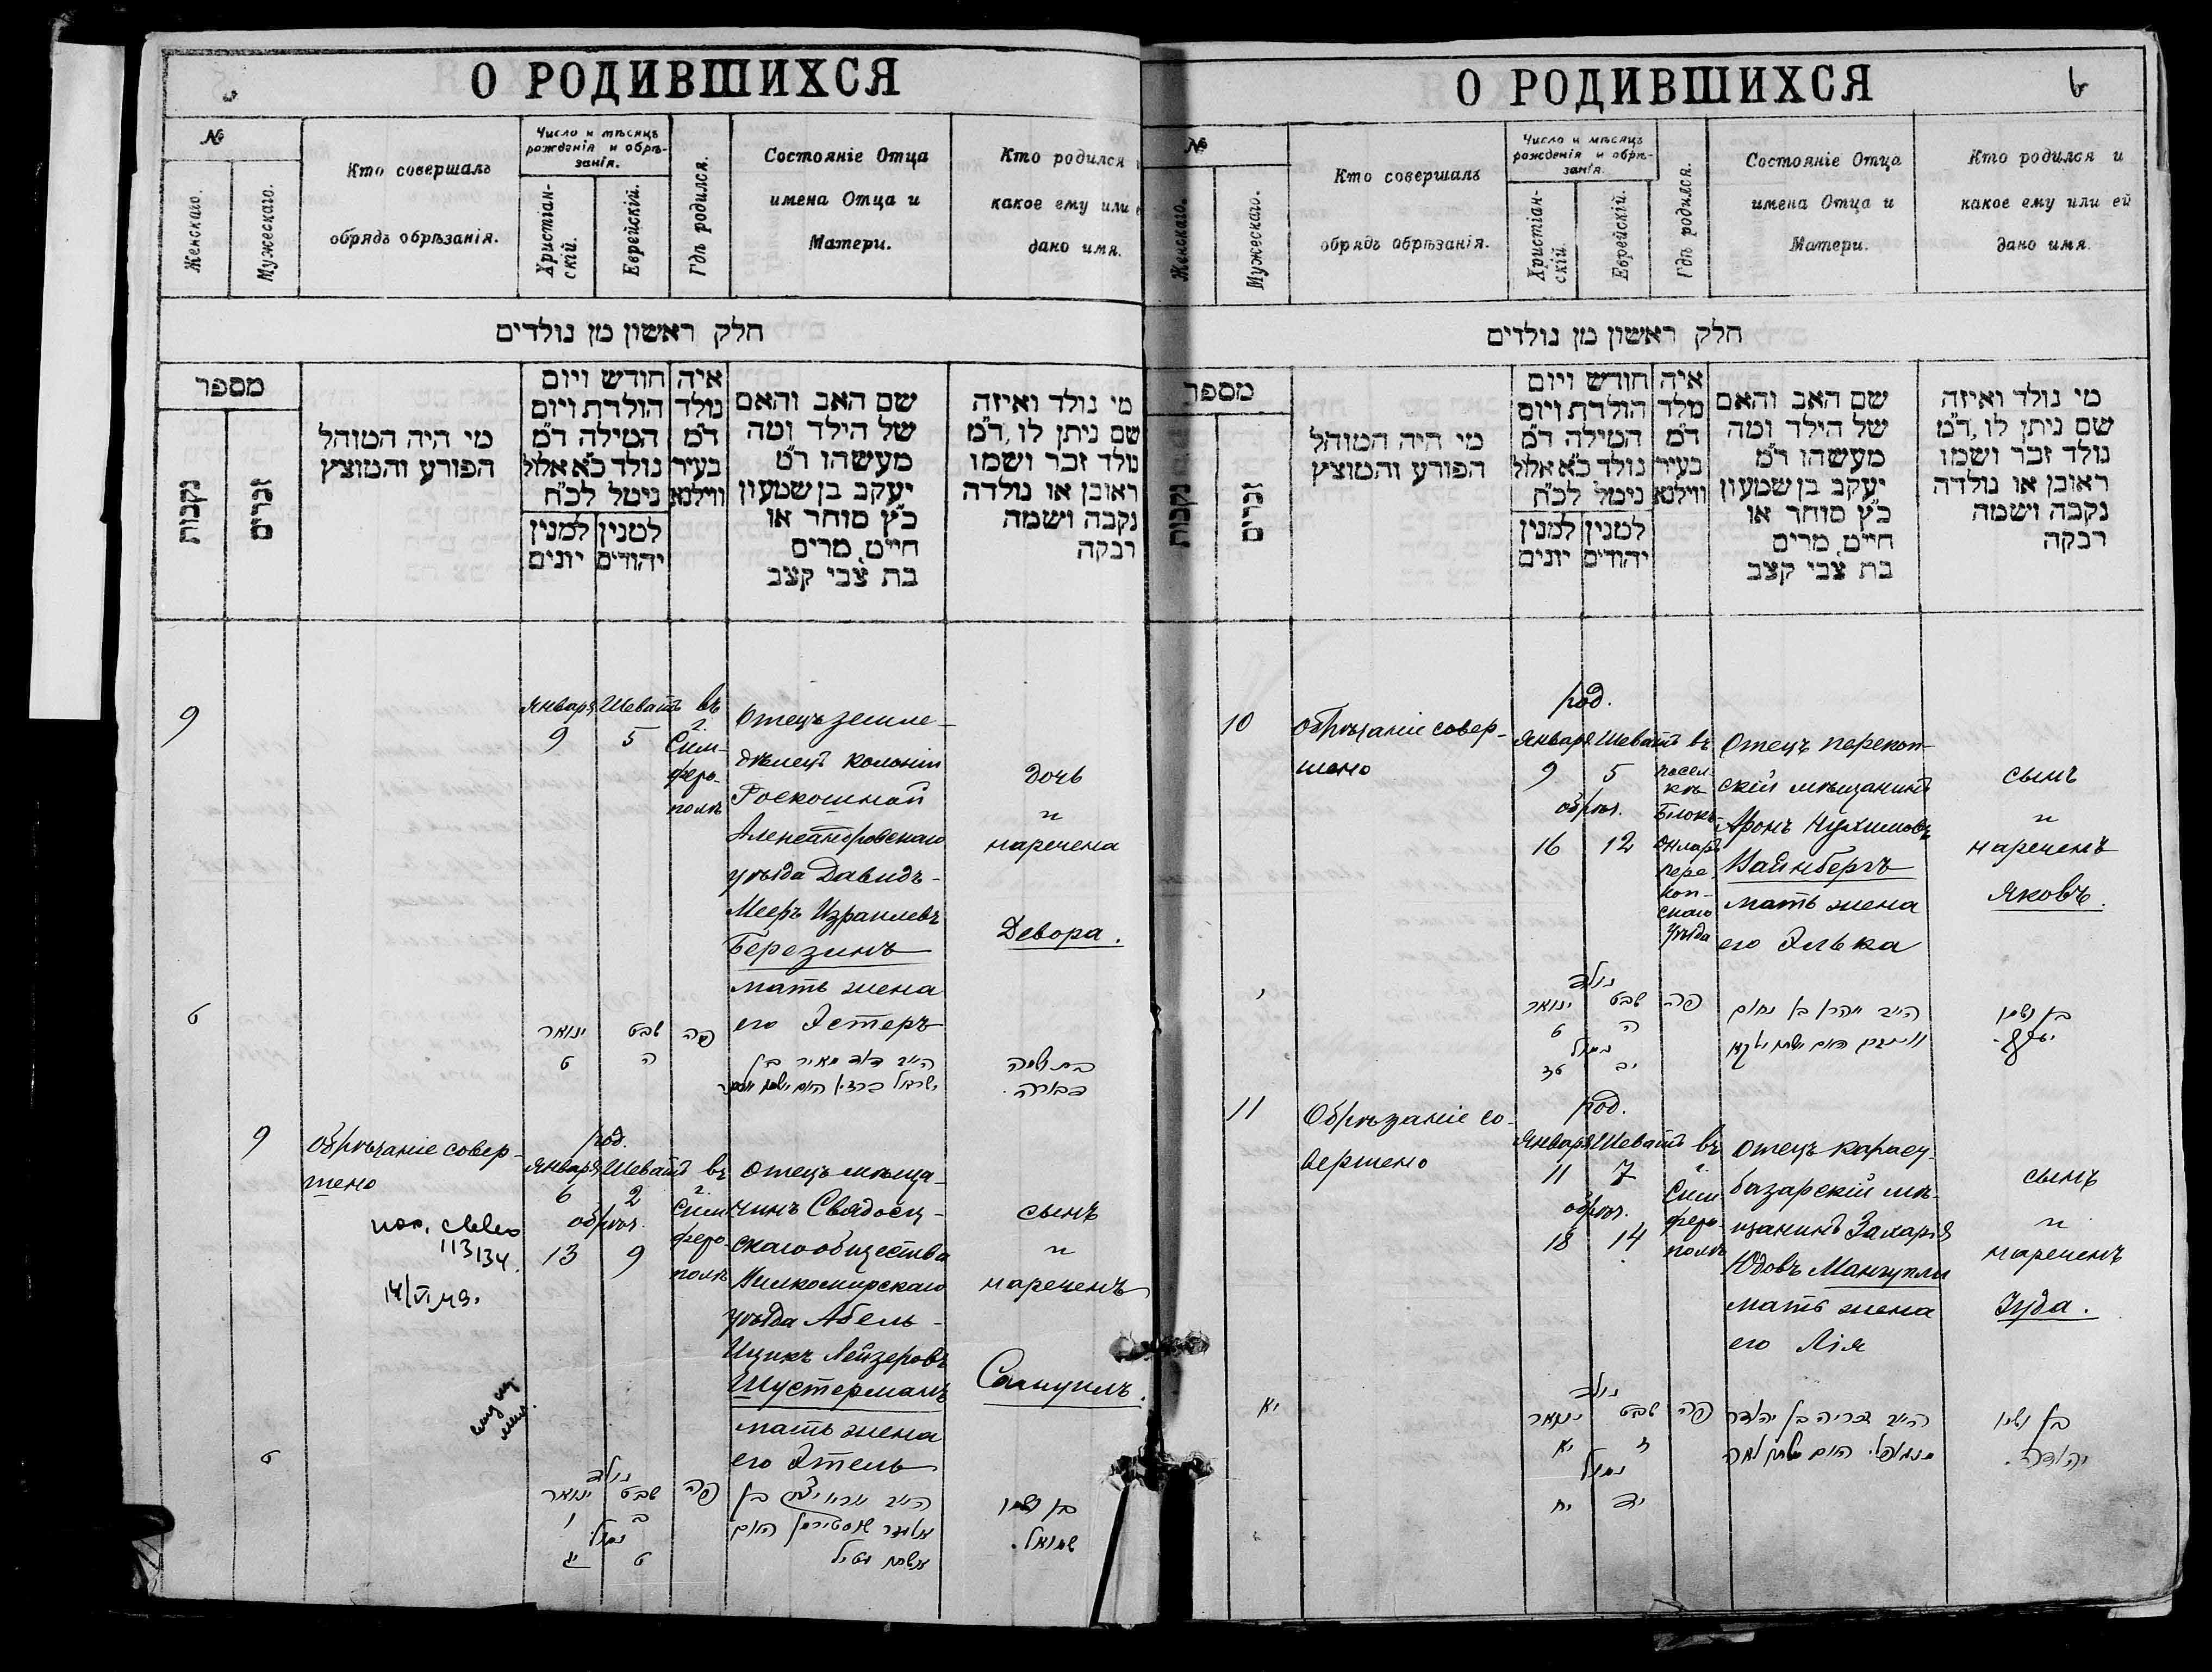 О РОДИВШИХСЯ
№
Женскаго.
Мужескаго.
Кто совершалъ
обрядъ обрѣзанія.
Число и мѣсяцъ
рожденія и обрѣ-
занія.
Христіан-
скій.
Еврейскій.
Гдѣ родился.
Состояніе Отца
имена Отца и
Матери.
Кто родился
какое ему или
дано имя.
חלק ראשון מן נולדים
מספר
נקבות
זכרים
מי היה המוהל
הפורע והמוצץ
חודש ויום
הולדת ויום
המילה ד״מ
נולד כ״א אלול
נימל לכ״ח
למנין יהודים
למנין יונים
איה
נולד
ד״מ
בעיר
ווילנא
שם האב והאם
של הילד ומה
מעשהו ד״מ
יעקב בן שמעון
כ״ץ סוחר או
חייט, מרים
בת צבי קצב
מי נולד ואיזה
שם ניתן לו, ד״מ
נולד זכר ושמו
ראובן או נולדה
נקבה ושמה
רבקה
9
Января Шеватъ
9 5
въ
г.
Сим-
феро-
полѣ
Отецъ земле-
дѣлецъ колоніи
Роскошной
Александровскаго
уѣзда Давидъ-
Мееръ Израилевъ
Березинъ
мать жена
его Эстеръ
дочь
и
наречена
Девора.
ט
ינואר שבט פה
ט ה
דבורה.
9
Обрѣзаніе совер-
шено
113134.
14/VI 49.
род.
Января Шеватъ
6 2
обрѣз.
13 9
въ
г.
Сим
феро-
полѣ
Отецъ мѣща-
нинъ Свядосц-
скаго общества
Вилкомирскаго
уѣзда Абель-
Ицикъ Лейзеровъ
Шустерманъ
мать жена
его Этель
сынъ
и
нареченъ
Самуилъ.
ט
נולד
ינואר שבט פה
ו ב
נמול
יג ט
שמואל.
О РОДИВШИХСЯ
6
№
Женскаго.
Мужескаго.
Кто совершалъ
обрядъ обрѣзанія.
Число и мѣсяцъ
рожденія и обрѣ-
занія.
Христіан-
скій.
Еврейскій.
Гдѣ родился.
Состояніе Отца
имена Отца и
Матери.
Кто родился и
какое ему или ей
дано имя.
חלק ראשון מן נולדים
מספר
נקבות
זכרים
מי היה המוהל
הפורע והמוצץ
חודש ויום
הולדת ויום
המילה ד״מ
נולד כ״א אלול
נימל לכ״ח
למנין יהודים
למנין יונים
איה
נולד
ד״מ
בעיר
ווילנא
שם האב והאם
של הילד ומה
מעשהו ד״מ
יעקב בן שמעון
כ״ץ סוחר או
חייט, מרים
בת צבי קצב
מי נולד ואיזה
שם ניתן לו, ד״מ
נולד זכר ושמו
ראובן או נולדה
נקבה ושמה
רבקה
10
Обрѣзаніе совер-
шено
род.
Января Шеватъ
9 5
обрѣз.
16 12
въ
посел-
кѣ
Біюкъ-
Онларъ
пере
коп-
скаго
уѣзда
Отецъ перекоп-
скій мѣщанинъ
Аронъ Нухимовъ
Вайнбергъ
мать жена
его Элька
сынъ
и
нареченъ
Яковъ.
י
נולד
ינואר שבט פה
ט ה
נמול
טז יב
יעקב.
11
Обрѣзаніе со-
вершено
род.
Января Шеватъ
11 7
обрѣз.
18 14
въ
г.
Сим
феро-
полѣ
Отецъ карасу-
базарскій мѣ-
щанинъ Захарія
Юдовъ Мангупли
мать жена
его Лія
сынъ
и
нареченъ
Іуда.
יא
נולד
ינואר שבט פה
יא ז
נמול
יח יד
יהודה.